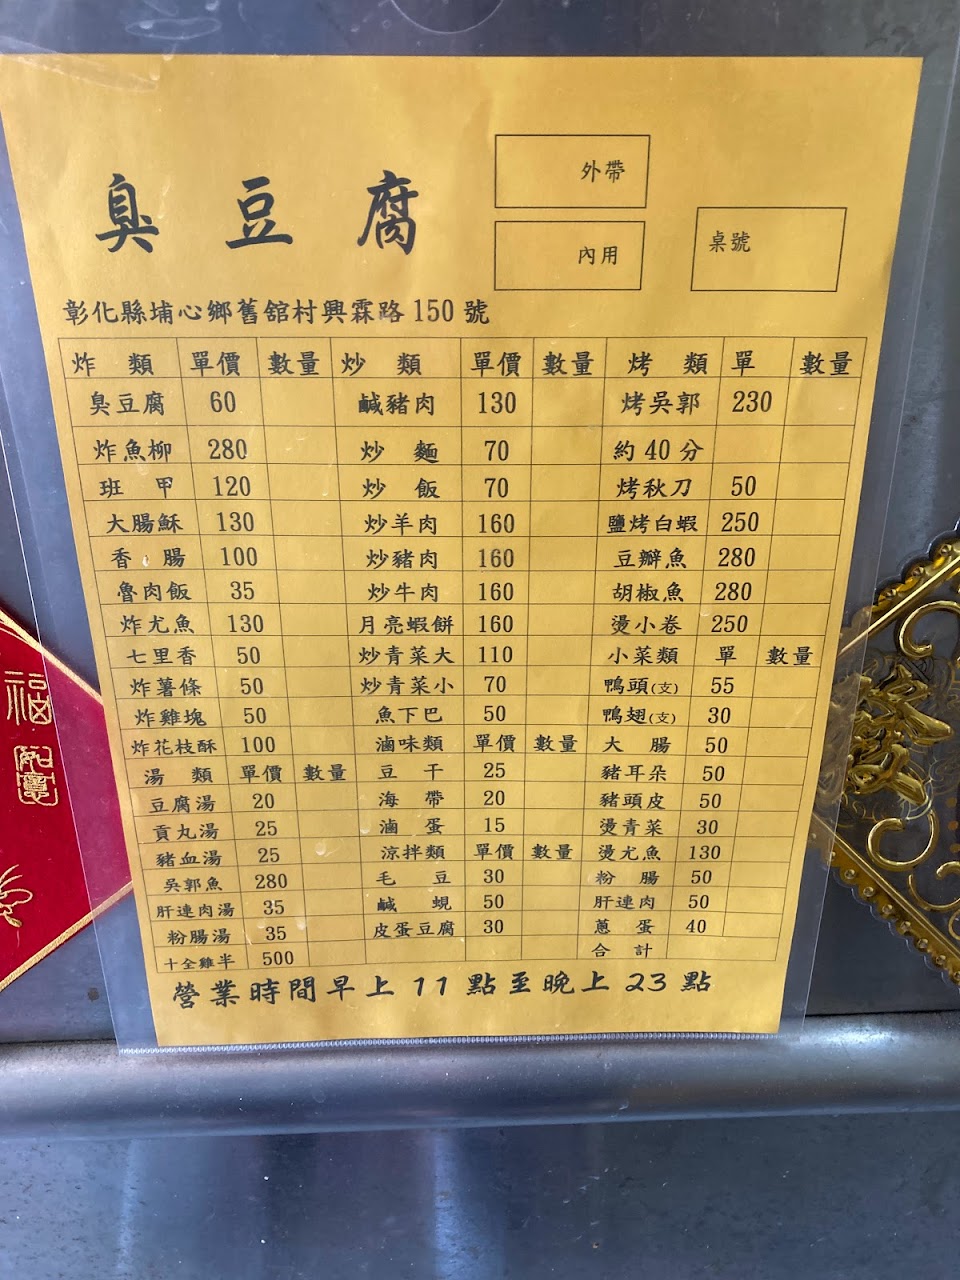 臭豆腐
外帶
內用
桌號
彰化縣埔心鄉舊舘村興霖路150號
炸 類 單價 數量 炒 類 單價 數量 烤 類 單 數量
臭豆腐 60 鹹豬肉 130 烤吳郭 230
炸魚柳 280 炒 麵 70 約40分
班 甲 120 炒 飯 70 烤秋刀 50
大腸酥 130 炒羊肉 160 鹽烤白蝦 250
香 腸 100 炒豬肉 160 豆瓣魚 280
魯肉飯 35 炒牛肉 160 胡椒魚 280
炸尤魚 130 月亮蝦餅 160 燙小卷 250
七里香 50 炒青菜大 110 小菜類 單 數量
炸薯條 50 炒青菜小 70 鴨頭(支) 55
炸雞塊 50 魚下巴 50 鴨翅(支) 30
炸花枝酥 100 滷味類 單價 數量 大 腸 50
湯 類 單價 數量 豆 干 25 豬耳朵 50
豆腐湯 20 海 帶 20 豬頭皮 50
貢丸湯 25 滷 蛋 15 燙青菜 30
豬血湯 25 涼拌類 單價 數量 燙尤魚 130
吳郭魚 280 毛 豆 30 粉 腸 50
肝連肉湯 35 鹹 蜆 50 肝連肉 50
粉腸湯 35 皮蛋豆腐 30 蔥 蛋 40
十全雞半 500 合 計
營業時間早上11點至晚上23點
福
如意